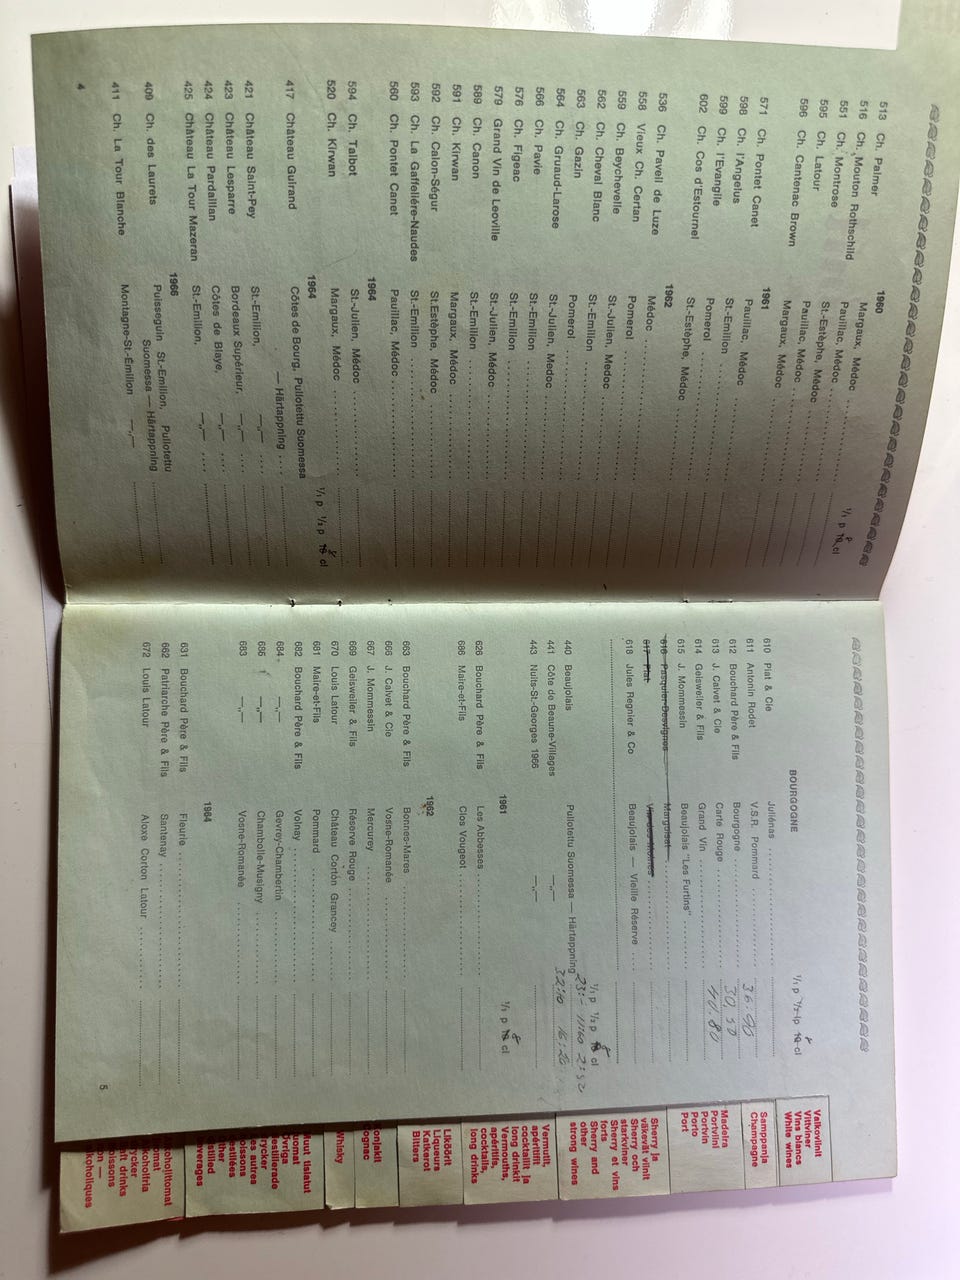 1960
1/1 p 8 10 cl
513 Ch. Palmer Margaux, Médoc
516 Ch. Mouton Rothschild Pauillac, Médoc
551 Ch. Montrose St.-Estèphe, Médoc
595 Ch. Latour Pauillac, Médoc
596 Ch. Cantenac Brown Margaux, Médoc
1961
571 Ch. Pontet Canet Pauillac, Médoc
598 Ch. l'Angelus St.-Emilion
599 Ch. l'Evangile Pomerol
602 Ch. Cos d'Estournel St.-Estèphe, Médoc
1962
536 Ch. Paveil de Luze Médoc
558 Vieux Ch. Certan Pomerol
559 Ch. Beychevelle St.-Julien, Médoc
562 Ch. Cheval Blanc St.-Emilion
563 Ch. Gazin Pomerol
564 Ch. Gruaud-Larose St.-Julien, Médoc
566 Ch. Pavie St.-Emilion
576 Ch. Figeac St.-Emilion
579 Grand Vin de Leoville St.-Julien, Médoc
589 Ch. Canon St.-Emilion
591 Ch. Kirwan Margaux, Médoc
592 Ch. Calon-Ségur St.Estèphe, Médoc
593 Ch. La Gaffelière-Naudes St.-Emilion
560 Ch. Pontet Canet Pauillac, Médoc
1964
594 Ch. Talbot St.-Julien, Médoc
520 Ch. Kirwan Margaux, Médoc
1/1 p 1/2 p 8 10 cl
1964
417 Château Guirand Côtes de Bourg, Pullotettu Suomessa
— Härtappning
421 Château Saint-Pey St.-Emilion, —„—
423 Château Lesparre Bordeaux Supérieur, —„—
424 Château Pardaillan Côtes de Blaye, —„—
425 Château La Tour Mazeran St.-Emilion, —„—
1966
409 Ch. des Laurets Puisseguin St.-Emilion, Pullotettu
Suomessa — Härtappning
411 Ch. La Tour Blanche Montagne-St.-Émilion —„—
4
BOURGOGNE
1/1 p 1/2 p 8 10 cl
610 Piat & Cie Juliénas
611 Antonin Rodet V.S.R. Pommard 36:90
612 Bouchard Père & Fils Bourgogne 30,50
613 J. Calvet & Cie Carte Rouge 41.80
614 Geisweiler & Fils Grand Vin
615 J. Mommessin Beaujolais "Les Furtins"
616 Pasquier-Desvignes Marguisat
617 Piat Vin des Moines
618 Jules Regnier & Co Beaujolais — Vieille Réserve
1/1 p 1/2 p 8 10 cl
440 Beaujolais Pullotettu Suomessa — Härtappning 23:- 11:60 2:52
441 Côte de Beaune-Villages —„— 32:10 16:20
443 Nuits-St.-Georges 1966 —„—
1/1 p 8 10 cl
1961
628 Bouchard Père & Fils Les Abbesses
686 Maire-et-Fils Clos Vougeot
1962
663 Bouchard Père & Fils Bonnes-Mares
666 J. Calvet & Cie Vosne-Romanée
667 J. Mommessin Mercurey
669 Geisweiler & Fils Réserve Rouge
670 Louis Latour Château Corton Grancey
681 Maire-et-Fils Pommard
682 Bouchard Père & Fils Volnay
684 —„— Gevrey-Chambertin
685 —„— Chambolle-Musigny
683 —„— Vosne-Romanée
1964
631 Bouchard Père & Fils Fleurie
662 Patriarche Père & Fils Santenay
672 Louis Latour Aloxe Corton Latour
5
Valkoviinit
Vitviner
Vins blancs
White wines
Samppanja
Champagne
Madeira
Portviini
Portvin
Porto
Port
Sherry ja
väkevät viinit
Sherry och
starkviner
Sherry et vins
forts
Sherry and
other
strong wines
Vermutit,
apéritifit
cocktailit ja
long drinkit
Vermouths,
apéritifs,
cocktails,
long drinks
Liköörit
Liqueurs
Katkerot
Bitters
Konjakit
Cognac
Whisky